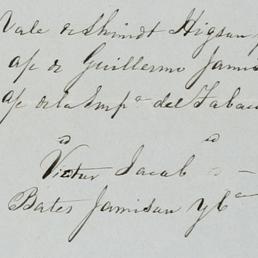 Vale de Shindt Higson
a/c de Guillermo Jami
a/c de la Emp.ª del Tabac
id id
Victor Jacob
Bates Jamison y C.ª